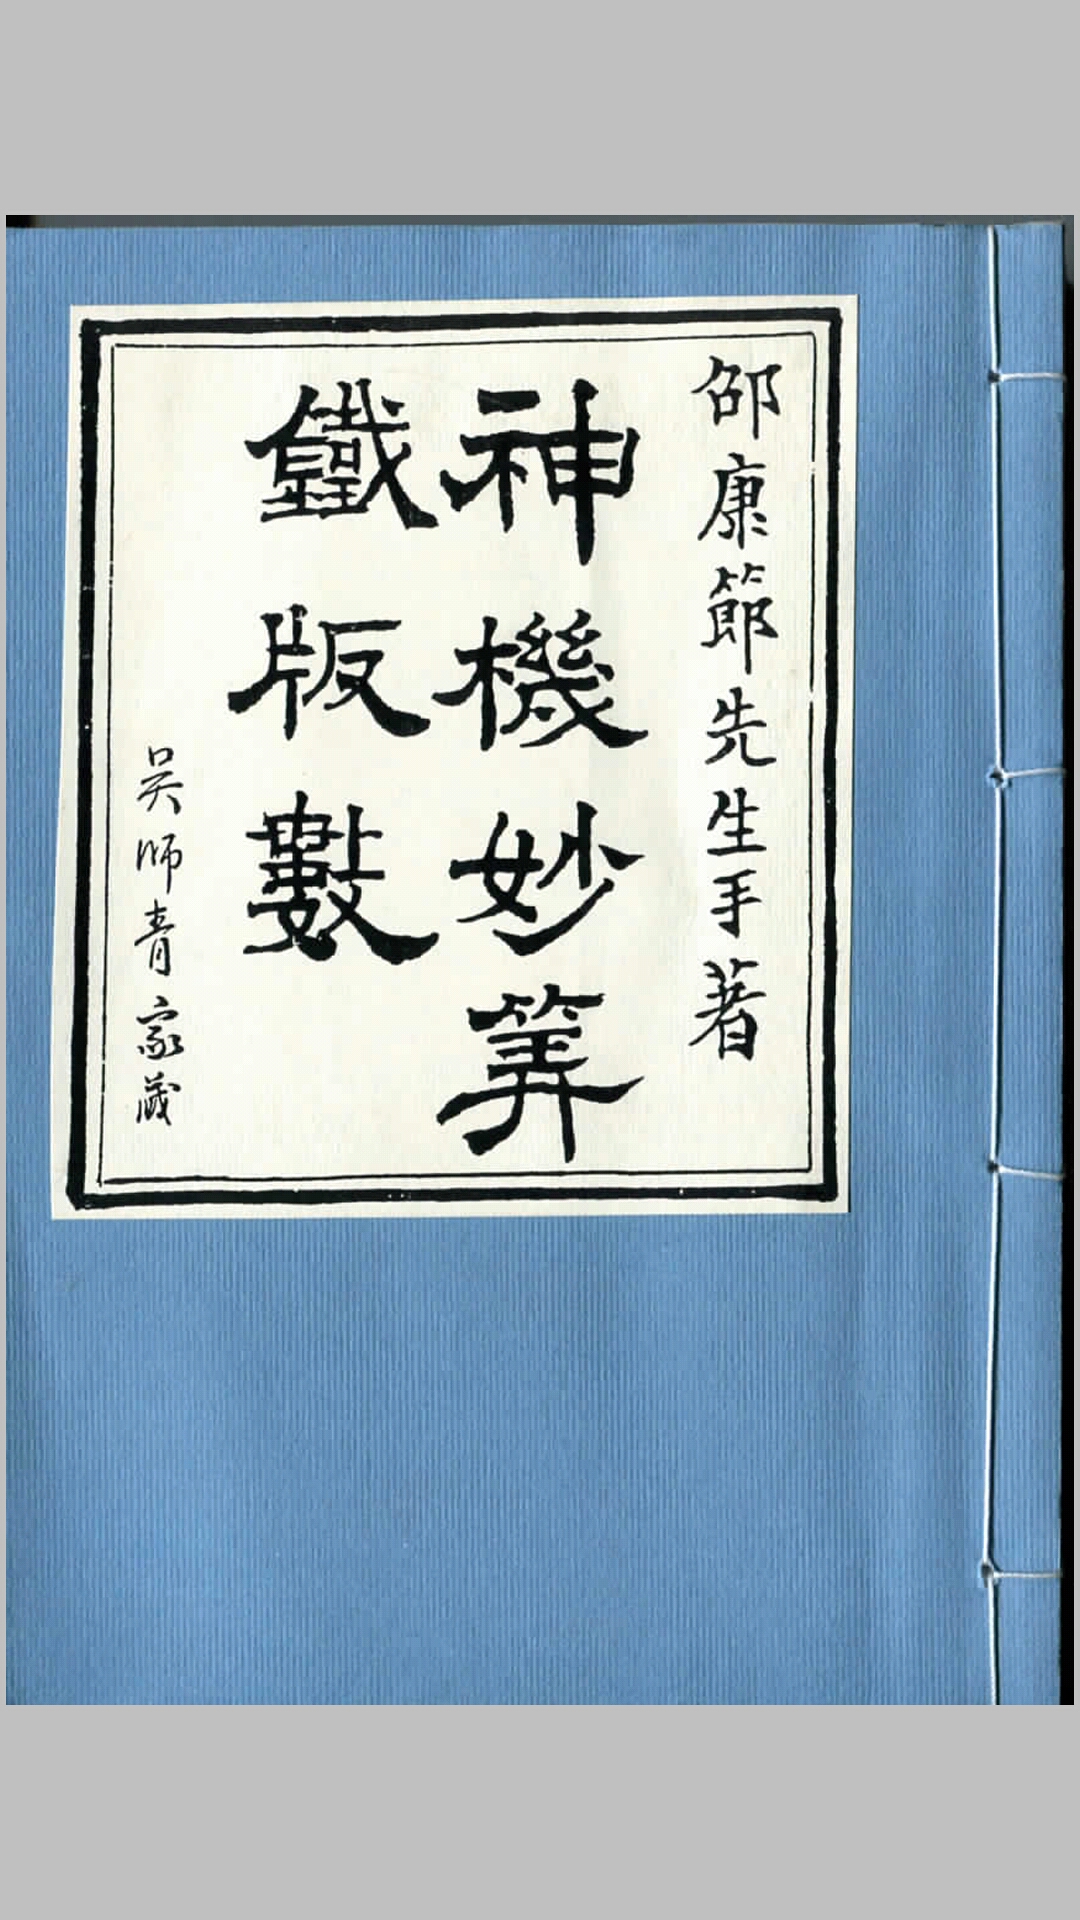 邵康節先生手著
神機妙筭
鐵版數
吴師青家藏